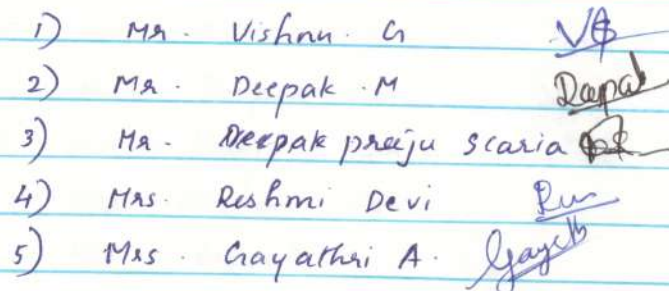 1) Mr. Vishnu. G VG
2) Mr. Deepak. M Deepak
3) Mr. Deepak preiju scaria
4) Mrs. Reshmi Devi
5) Mrs. Gayathri A. Gayath